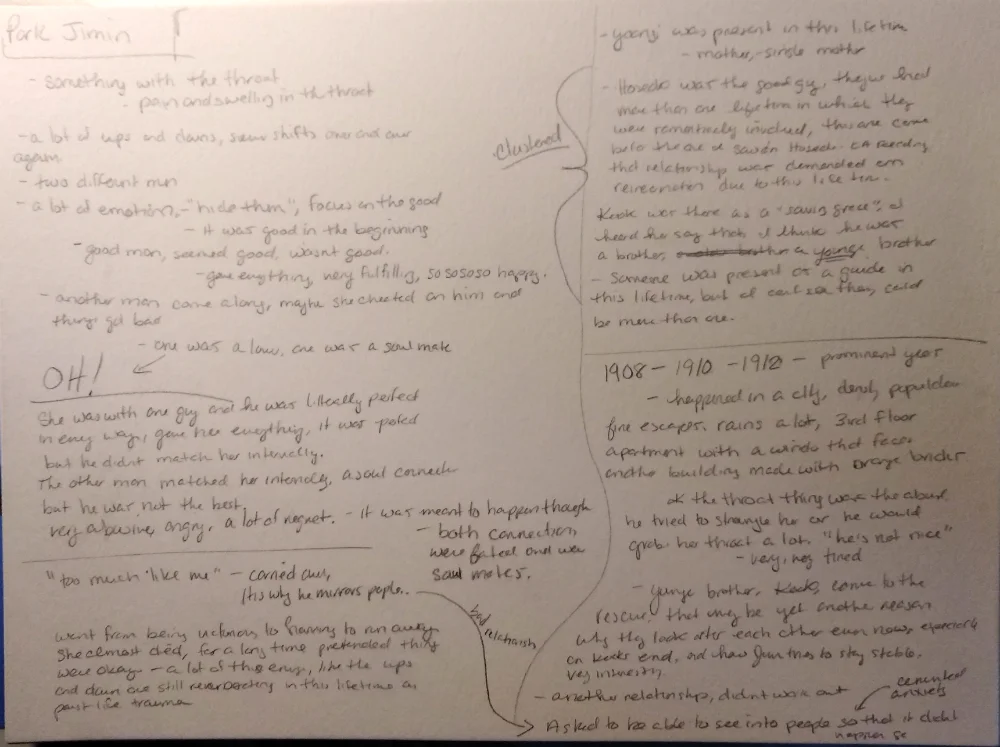 Park Jimin
- something with the throat
- pain and swelling in th throat
- a lot of ups and downs, shifts over and over
again
- two different men
- a lot of emotion, - "hide them", focus on the good
- it was good in the beginning
- good man, seemed good, wasnt good.
- gave everything, very fulfilling, so sososo happy.
- another man came along, maybe she cheated on him and
things got bad
- one was a love, one was a soul mate
OH!
She was with one guy and he was litterally perfect
in every way, gave her everything, it was
but he didnt match her internally.
The other man matched her internally, a soul connection
but he was not the best.
very abusive, angry, a lot of regret. - it was meant to happen though
- both connections
were fated and were
soul mates.
"too much like me" - carried over,
its why he mirrors people..
bad relationship
went from being to having to run away
She almost died, for a long time pretended things
were okay - a lot of this energy, like the ups
and down are still reverberating in this lifetime as
past life trauma
- yoongi was present in this lifetime
- mother, - single mother
clustered
- Hoseok was the good guy, theyve had
more than one lifetime in which they
were romantically involved,
before the one
that relationship was demanded
reincarnation due to this life time.
Kook was there as a "saving grace", I
heard her say that. I think he was
a brother, a younger brother
- Someone was present as a guide in
this lifetime, but I cant see them, could
be more than one.
1908 - 1910 - 1912 - prominent years
- happened in a city, densly populated
fire escapes. rains a lot, 3rd floor
apartment with a window that faces
another building made with orange bricks
ok the throat thing was the abuse
he tried to strangle her or he would
grab her throat a lot. "he's not nice"
- very, very tired
- younger brother, Kook, came to the
rescue, that may be yet another reason
why they look after each other even now, especially
on kooks end, and how Jimin tries to stay stable.
very interesting.
- another relationship, didnt work out
cemented anxiety
Asked to be able to see into people so that it didnt
happen